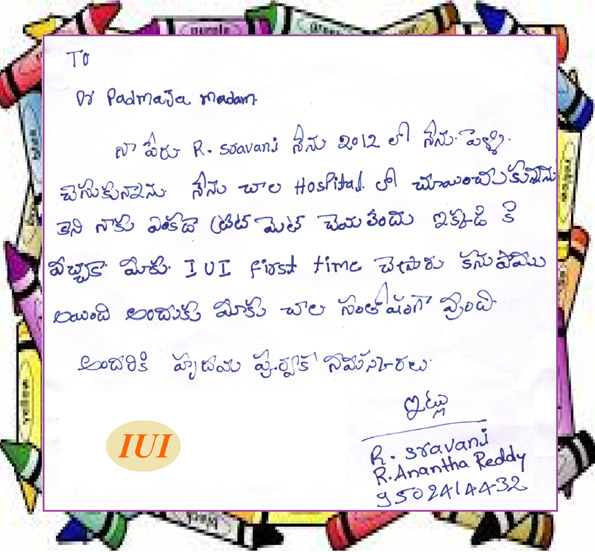 To
Dr Padmaja madam.
నా పేరు R. Sravani నేను 2012 లో నేను పెళ్ళి
చేసుకున్నాను నేను చాల Hospital లో చూయించుకున్నాను
కాని నాకు ఎక్కడా ఇక్కడి కి
వచ్చాక మాకు IUI first time చేసారు
అయింది అందుకు మాకు చాల సంతోషంగా వుంది
అందరికి హృదయ పూర్వక నమస్కారలు.
ఇట్లు
R. Sravani
R. Anantha Reddy
9502414432
IUI